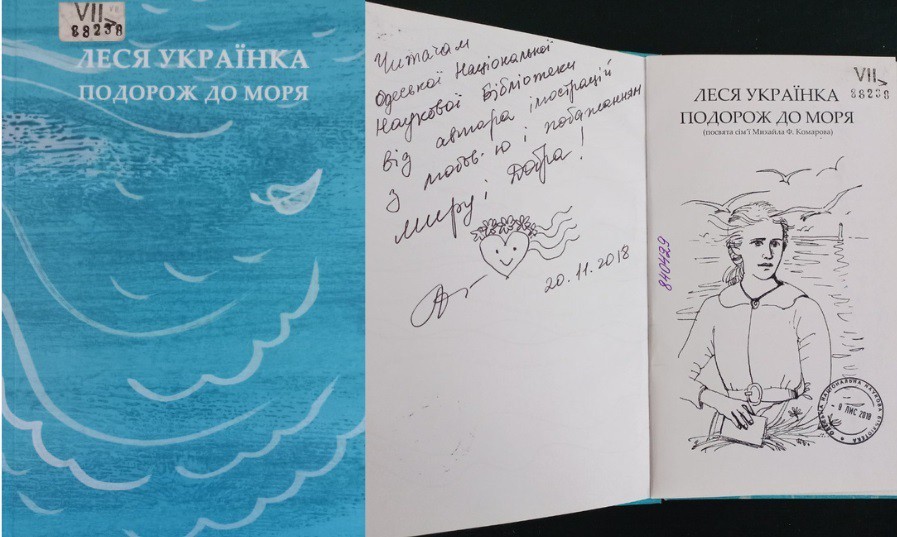 VII
88238
ЛЕСЯ УКРАЇНКА
ПОДОРОЖ ДО МОРЯ
Читачам
Одеської Національної
Наукової Бібліотеки
від автора ілюстрацій
з любов'ю і побажанням
миру і Добра!
20.11.2018
VII
88238
ЛЕСЯ УКРАЇНКА
ПОДОРОЖ ДО МОРЯ
(посвята сім'ї Михайла Ф. Комарова)
840429
ОДЕСЬКА НАЦІОНАЛЬНА НАУКОВА БІБЛІОТЕКА
ЛИС 2018